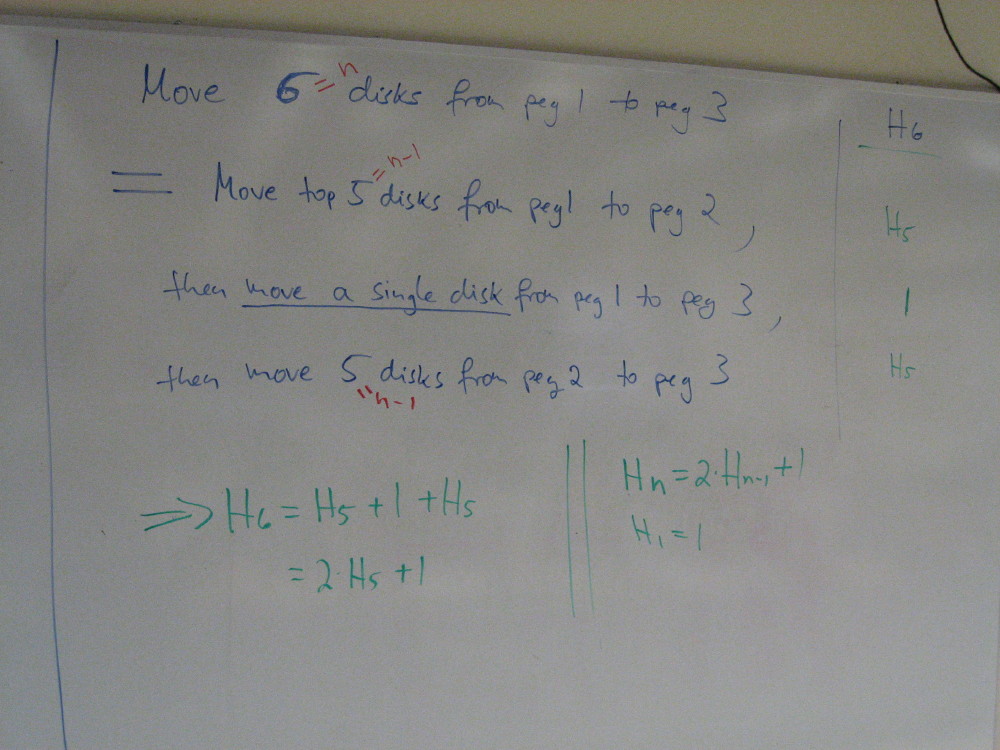 Move 6 = n disks from peg 1 to peg 3
H₆
= Move top 5 = n-1 disks from peg 1 to peg 2,
H₅
then move a single disk from peg 1 to peg 3,
1
then move 5 disks from peg 2 to peg 3
H₅
" n-1
⇒ H₆ = H₅ + 1 + H₅
= 2·H₅ + 1
Hₙ = 2·Hₙ₋₁ + 1
H₁ = 1